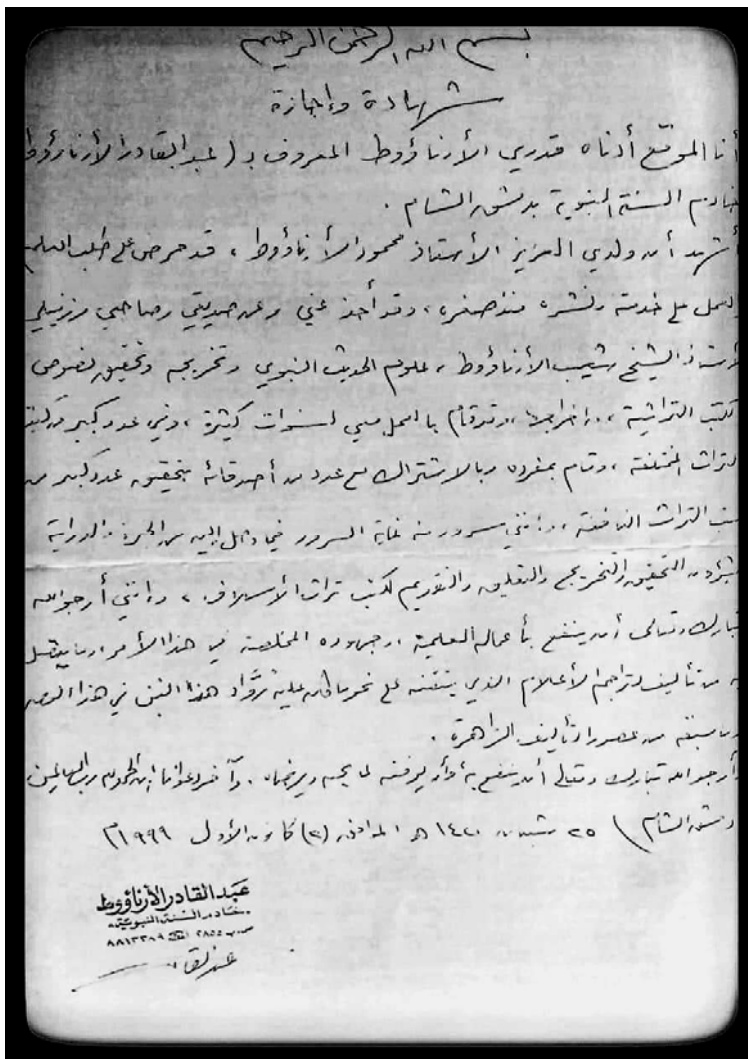 بسم الله الرحمن الرحيم
شهادة وإجازة
أنا الموقع أدناه قدري الأرناؤوط المعروف بـ (عبد القادر الأرناؤوط
خادم السنة النبوية بدمشق الشام .
أشهد أن ولدي العزيز الأستاذ محمود الأرناؤوط ، قد حرص على طلب العلم
والعمل على خدمته ونشره منذ صغره ، وقد أخذ عني وعن صديقي وصاحبي وزميلي
الأستاذ الشيخ شعيب الأرناؤوط ، علوم الحديث النبوي وتخريجه وتحقيق نصوص
كتب التراثية ، وإخراجها ، وقد قام بالعمل معي لسنوات كثيرة ، وفي عدد كبير من كتب
التراث المختلفة ، وقام بمفرده وبالاشتراك مع عدد من أصدقائه بتحقيق عدد كبير من
كتب التراث النافعة ، وإنني مسرور منه غاية السرور فيما وصل إليه من الخبرة والدراية
بشؤون التحقيق والتخريج والتعليق والتقديم لكتب تراث الأسلاف ، وإنني أرجو الله
تبارك وتعالى أن ينفع بأعماله العلمية ، وجهوده المخلصة في هذا الأمر ، وما
به من تأليف لتراجم الأعلام الذي يتقنه على نحو ما كان عليه روّاد هذا الفن في هذا العصر
وما سبقه من عصور التأليف الزاهرة .
وأرجو الله تبارك وتعالى أن ينفع به وأن يوفقه لما يحبه ويرضاه . وآخر دعوانا أن الحمد لله رب العالمين
دمشق الشام ) ٢٥ شعبان ١٤٢٠ هـ الموافق (٣) كانون الأول ١٩٩٩م
عبد القادر الأرناؤوط
خادم السنة النبوية
ص.ب ٢٨٥٥ ☎ ٨٨١٣٣٨٩